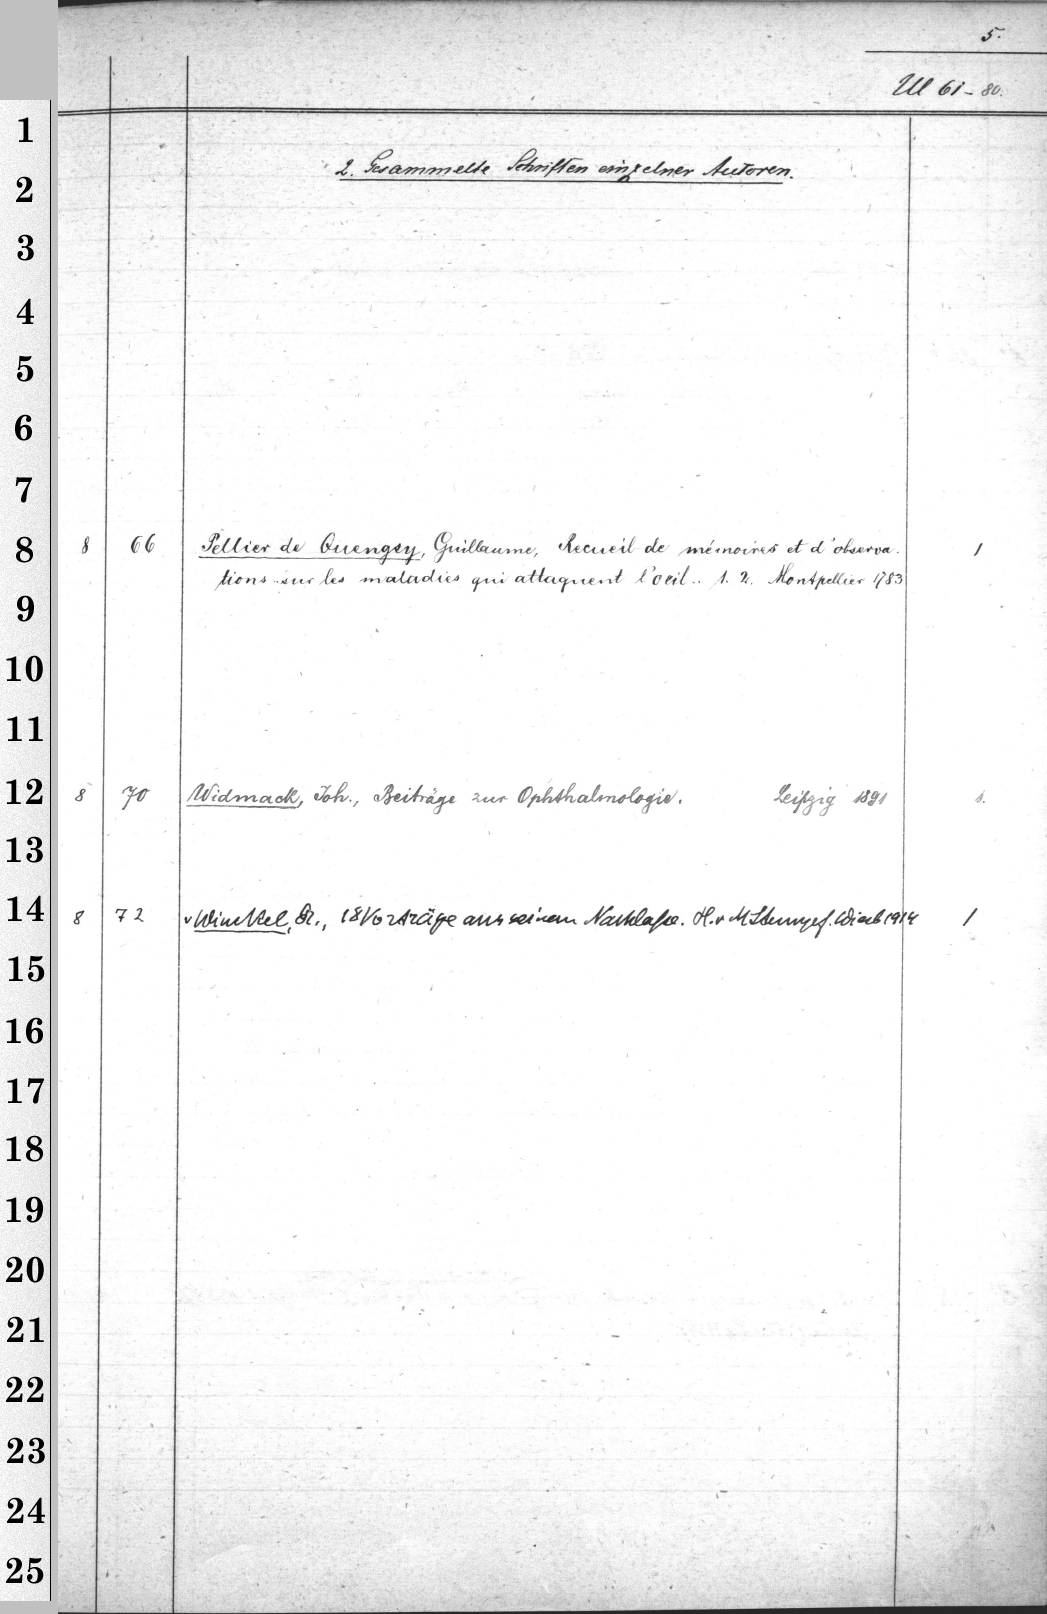 5.
Ul 61-80.
1
2. Gesammelte Schriften einzelner Autoren.
2
3
4
5
6
7
8 8 66 Pellier de Quengsy, Guillaume, Recueil de mémoires et d'observa- 1
tions sur les maladies qui attaquent l'oeil.. 1. 2. Montpellier 1783
9
10
11
12 8 70 Widmack, Joh., Beiträge zur Ophthalmologie. Leipzig 1891 1.
13
14 8 72 v Winckel, Fr., 18 Vorträge aus seinem Nachlasse. H. v M Stumpf. Wiesb 1914 1
15
16
17
18
19
20
21
22
23
24
25